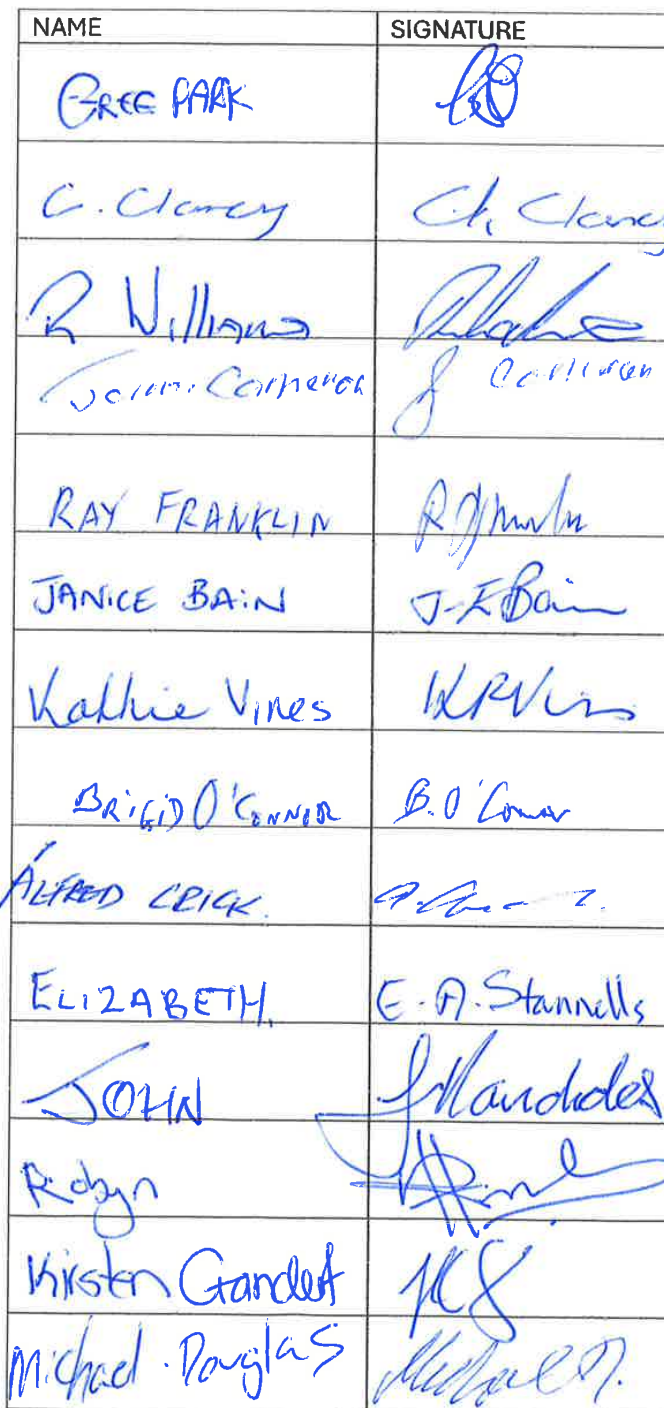 NAME SIGNATURE
GREG PARK
C. Clancy Ch. Clancy
R Williams
Cameron
RAY FRANKLIN
JANICE BAIN J-E Bain
Kathie Vines KRVines
BRIGID O'CONNOR B. O'Connor
ALFRED CRICK.
ELIZABETH. E. A. Stannells
JOHN
Robyn
Kirsten KG
Michael Douglas Michael D.